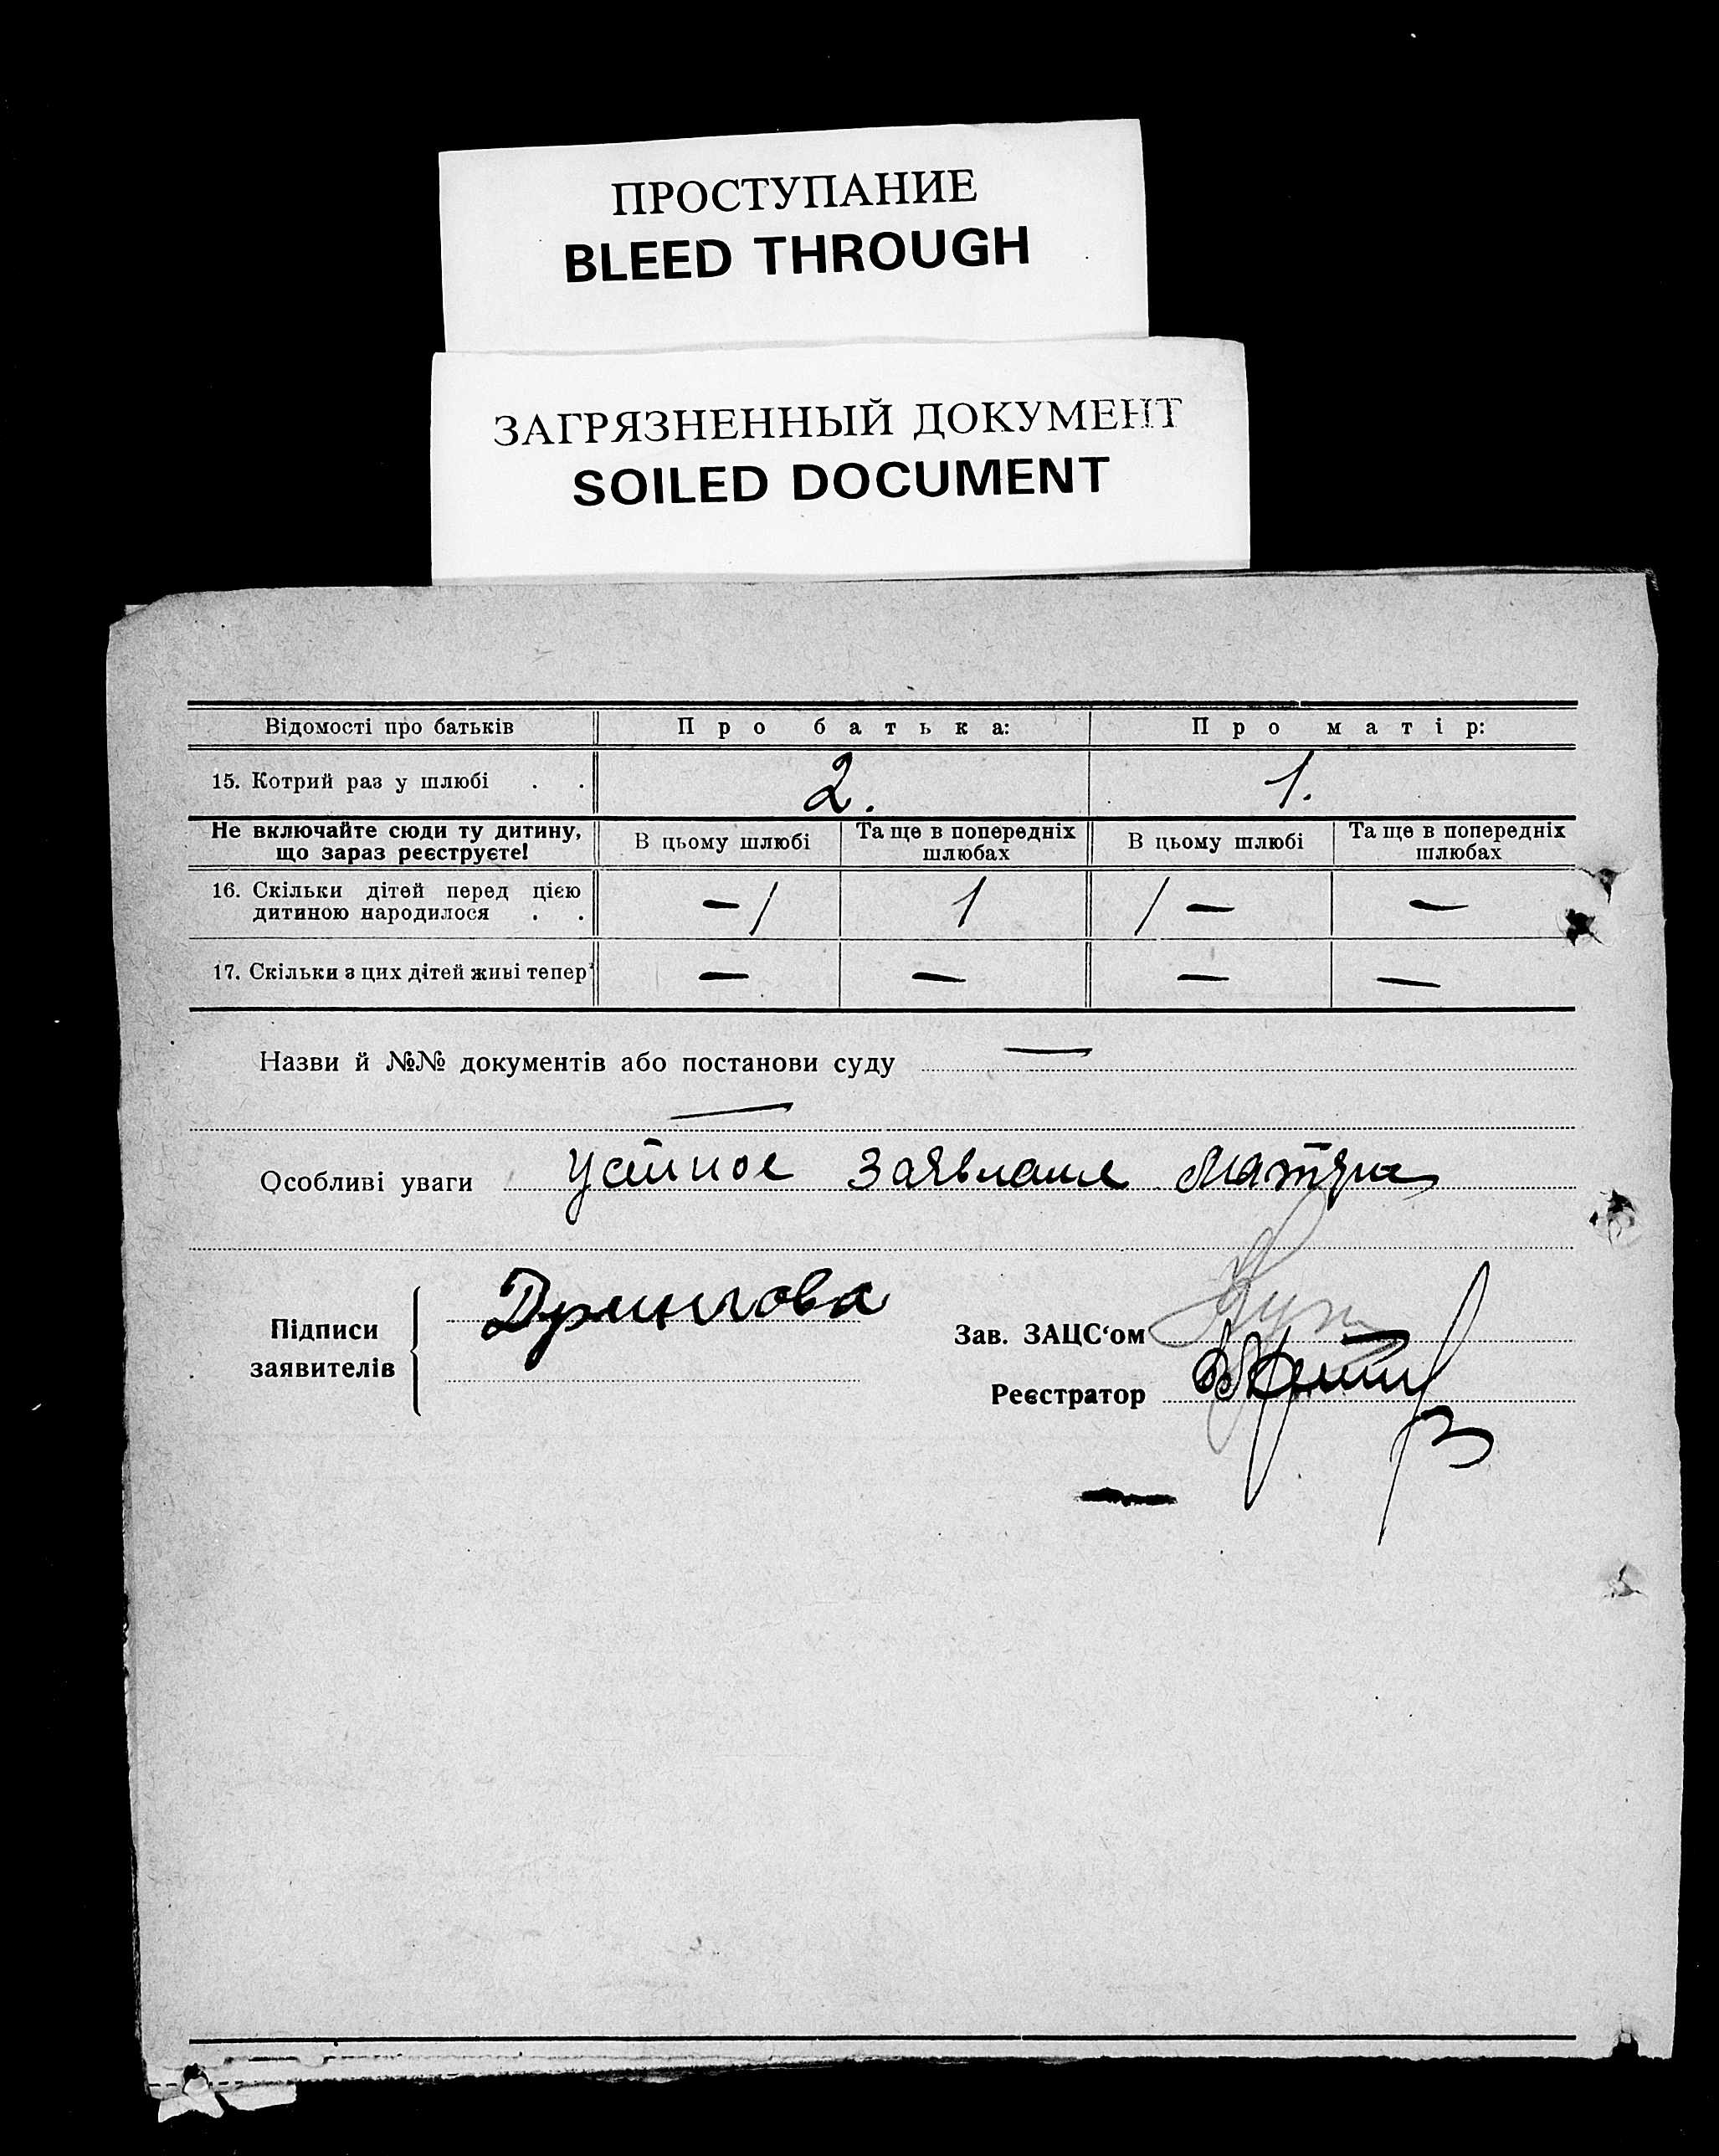 ПРОСТУПАНИЕ
BLEED THROUGH
ЗАГРЯЗНЕННЫЙ ДОКУМЕНТ
SOILED DOCUMENT
Відомості про батьків Про батька: Про матір:
15. Котрий раз у шлюбі . . 2. 1.
Не включайте сюди ту дитину, що зараз реєструєте! В цьому шлюбі Та ще в попередніх шлюбах В цьому шлюбі Та ще в попередніх шлюбах
16. Скільки дітей перед цією
дитиною народилося . . — / 1 / — —
17. Скільки з цих дітей живі тепер — — — —
Назви й №№ документів або постанови суду —
—
Особливі уваги Устное заявление
Підписи
заявителів
Зав. ЗАЦС‘ом
Реєстратор